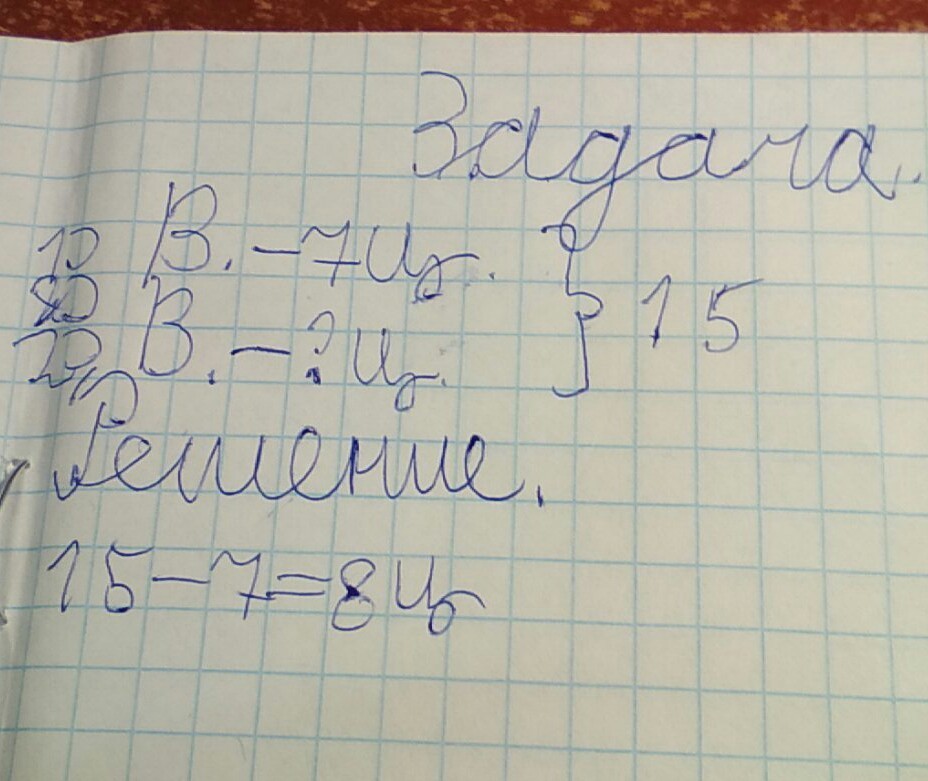 Задача.
1) В. – 7 ц. } 15
2) В. – ? ц.
Решение.
15 – 7 = 8 ц